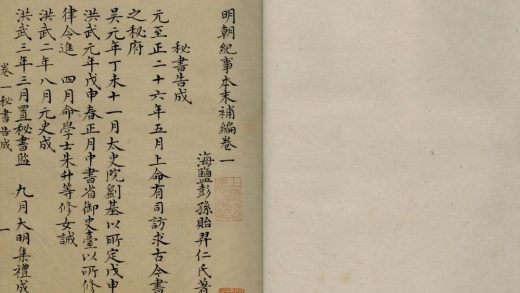 明朝紀事本末補編卷一
海鹽彭孫貽羿仁氏著
秘書告成
元至正二十六年五月上命有司訪求古今書
之秘府
吳元年丁未十一月太史院劉基以所定戊申
洪武元年戊申春正月中書省御史臺以所修
律令進　四月命學士朱升等修女誡
洪武二年八月元史成
洪武三年三月置秘書監　九月大明集禮成
卷一秘書告成　一